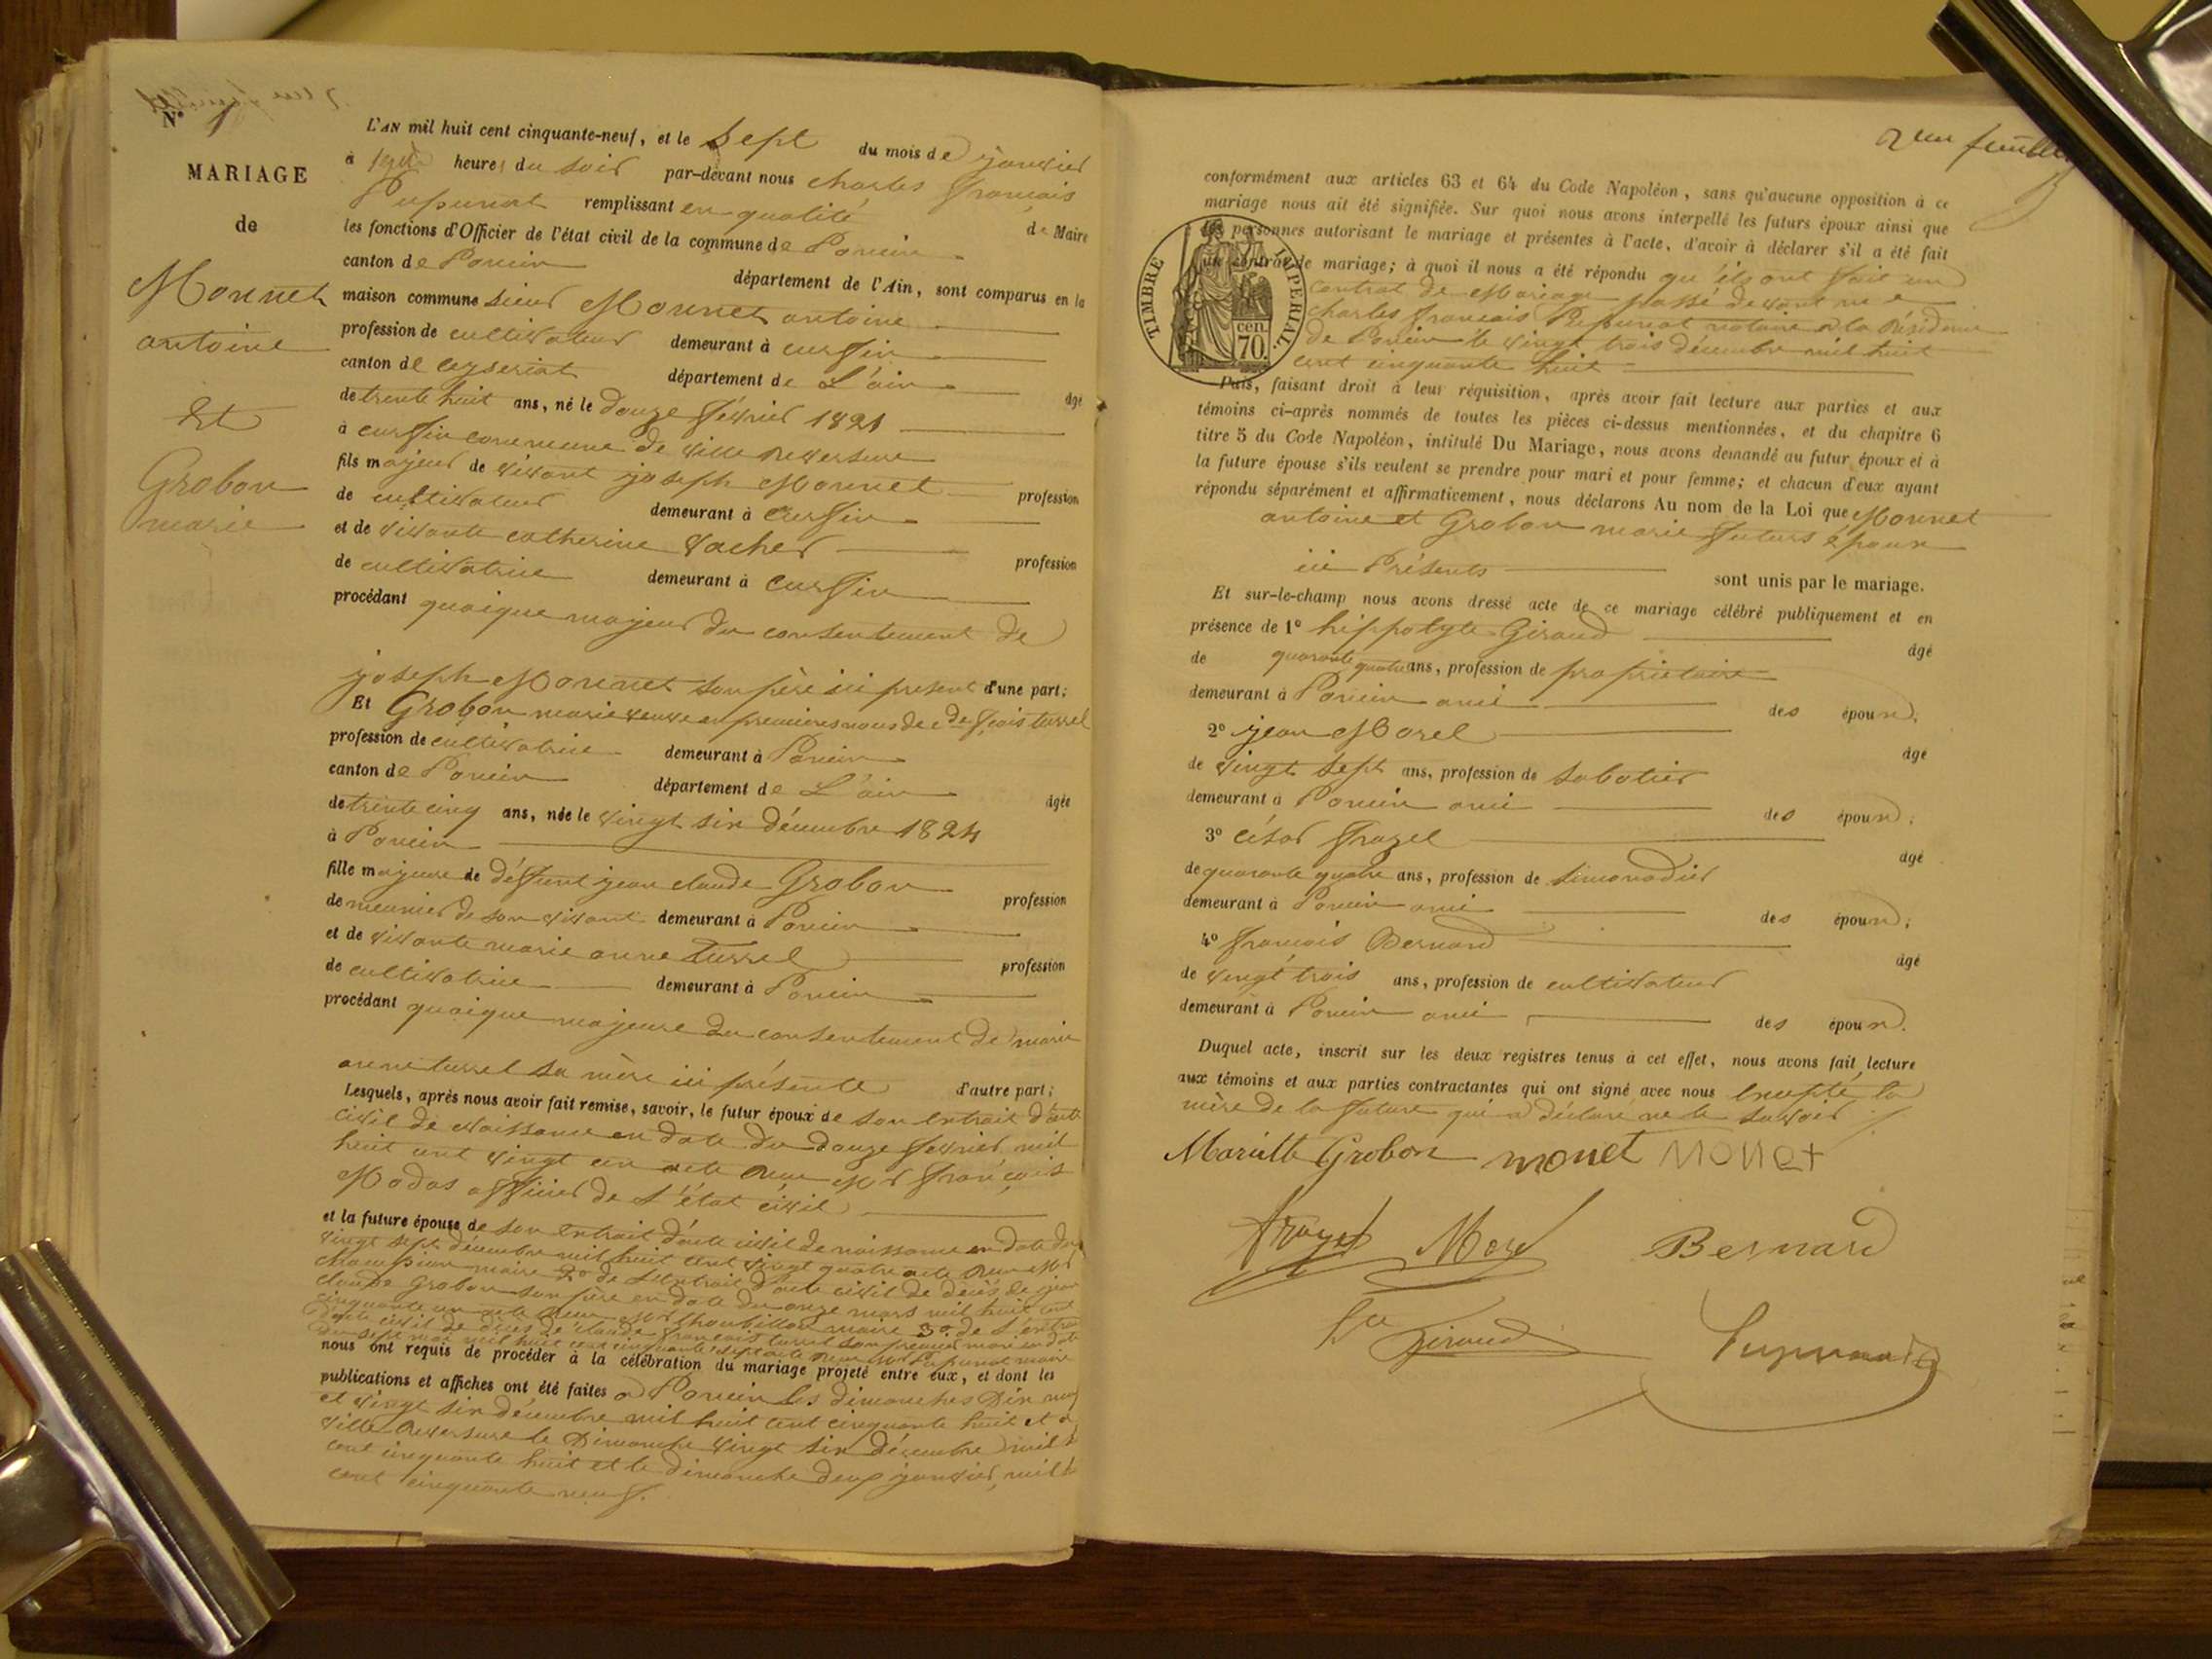 N° 1
MARIAGE
de
Monnet
antoine
Et
Grobon
marie
L'AN mil huit cent cinquante-neuf, et le Sept du mois de janvier
à heures du soir par-devant nous charles françois
Pupunat remplissant en qualité de Maire
les fonctions d'Officier de l'état civil de la commune de Poncin
canton de Poncin département de l'Ain, sont comparus en la
maison commune sieur Monnet antoine
profession de cultivateur demeurant à cursin
canton de ceyseriat département de L'ain âgé
de trente huit ans, né le douze février 1821
à curfin commune de ville reversure
fils majeur de vivant joseph Monnet profession
de cultivateur demeurant à Curfin
et de vivante catherine vacher profession
de cultivatrice demeurant à Curfin
procédant quoique majeur du consentement de
joseph Monnet son père ici présent d'une part;
Et Grobon marie veuve en premières nous de cde fçois turrel
profession de cultivatrice demeurant à Poncin
canton de Poncin département de L'ain âgée
de trente cinq ans, née le vingt six décembre 1824
à Poncin
fille majeure de défunt jean claude Grobon profession
de meunier de son vivant demeurant à Poncin
et de vivante marie anne Turrel profession
de cultivatrice demeurant à Poncin
procédant quoique majeure du consentement de marie
anne turrel sa mère ici présente d'autre part;
Lesquels, après nous avoir fait remise, savoir, le futur époux de son extrait d'acte
civil de naissance en date du douze fevrier mil
huit cent vingt un acte reçu Mr françois
Modas officier de l'état civil
et la future épouse de son extrait d'acte civil de naissance en date du
vingt sept décembre mil huit cent vingt quatre acte reçu Mr
Champion maire 2° de l'extrait d'acte civil de décés de jean
claude Grobon son père en date du onze mars mil huit cent
cinquante un acte reçu Mr thoubillon maire 3° de l'extrait
d'acte civil de décés de claude françois turrel son premier mari en date
du sept mai mil huit cent cinquante sept acte reçu Mr Pupunat maire
nous ont requis de procéder à la célébration du mariage projeté entre eux, et dont les
publications et affiches ont été faites à Poncin les dimanches Dix neuf
et vingt six décembre mil huit cent cinquante huit et à
ville Reversure le Dimanche vingt six décembre mil h
cent cinquante huit et le dimanche deux janvier mil h
cent cinquante neuf.
2me feuillet
conformément aux articles 63 et 64 du Code Napoléon, sans qu'aucune opposition à ce
mariage nous ait été signifiée. Sur quoi nous avons interpellé les futurs époux ainsi que
les personnes autorisant le mariage et présentes à l'acte, d'avoir à déclarer s'il a été fait
un contrat de mariage; à quoi il nous a été répondu qu'ils ont fait un
contrat de Mariage passé devant me
charles françois Pupunat notaire à la Résidence
de Poncin le vingt trois décembre mil huit
cent cinquante huit
TIMBRE IMPERIAL.
cen.
70.
Puis, faisant droit à leur réquisition, après avoir fait lecture aux parties et aux
témoins ci-après nommés de toutes les pièces ci-dessus mentionnées, et du chapitre 6
titre 5 du Code Napoléon, intitulé Du Mariage, nous avons demandé au futur époux et à
la future épouse s'ils veulent se prendre pour mari et pour femme; et chacun d'eux ayant
répondu séparément et affirmativement, nous déclarons Au nom de la Loi que Monnet
antoine et Grobon marie futurs époux
ici Présents sont unis par le mariage.
Et sur-le-champ nous avons dressé acte de ce mariage célébré publiquement et en
présence de 1° hippolyte Giraud âgé
de quarante quatre ans, profession de propriétaire
demeurant à Poncin ami des époux;
2° jean Morel âgé
de vingt sept ans, profession de sabotier
demeurant à Poncin ami des époux;
3° césar frazel âgé
de quarante quatre ans, profession de limonadier
demeurant à Poncin ami des époux;
4° françois Bernard âgé
de vingt trois ans, profession de cultivateur
demeurant à Poncin ami des époux.
Duquel acte, inscrit sur les deux registres tenus à cet effet, nous avons fait lecture
aux témoins et aux parties contractantes qui ont signé avec nous excepté la
mère de la future qui a déclaré ne le savoir
Mariette Grobon monet Monet
frazel Morel Bernard
Giraud Pupunat